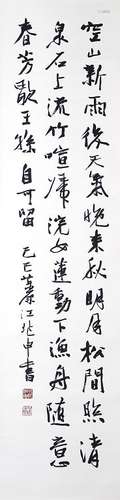 空山新雨後天氣晚來秋明月松間照清
泉石上流竹喧歸浣女蓮動下漁舟隨意
春芳歇王孫自可留 己巳 江兆申書